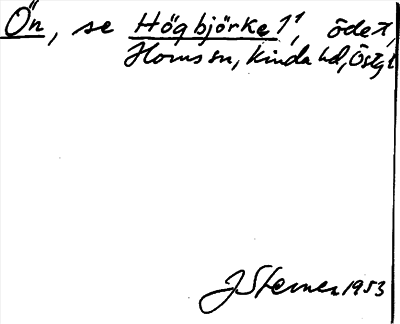 Ön, se Högbjörke 1¹, öde t,
Horns sn, Kinda hd, Östgt
J Sterner 1953